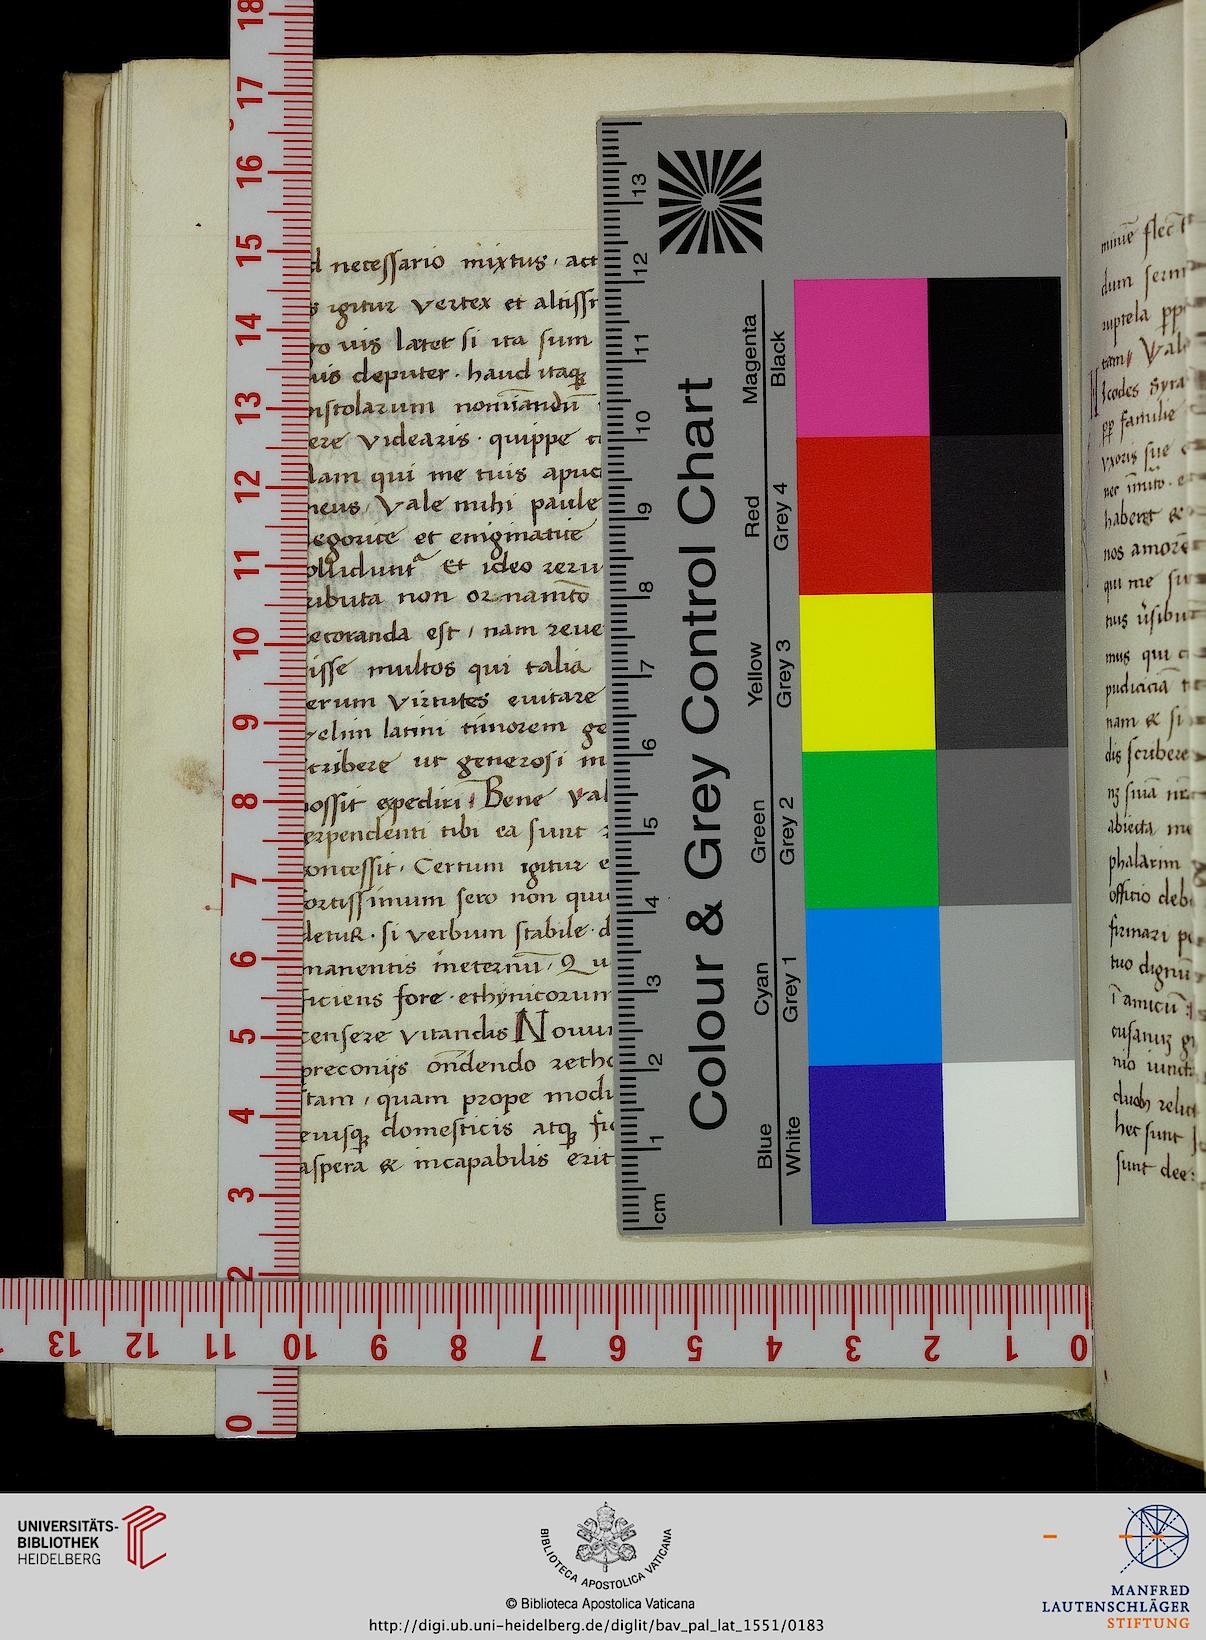 d necessario mixtus · act
s igitur vertex et altiss
ro uis latet si ita sum
uis deputer · haud itaq
pistolarum nominandu
ere videaris · quippe
Nam qui me tuis apuc
meus, Vale mihi paule
egorice et enigmatice
olliduntur Et ideo reru
ributa non ornamto
ecoranda est / nam reue
isse multos qui talia
erum virtutes euitare
velim latini timorem ge
scribere ut generosi in
possit expediri, Bene val
erpendenti tibi ea sunt
concessit · Certum igitur e
fortissimum sero non qui
detuR · si verbum stabile · d
manentis ineternu, Qu
ficiens fore · ethynicorum
censere vitandis Nouu
preconijs ondendo retho
stam, quam prope modu
eiusq domesticis atq fi
aspera & incapabilis erit
dum serm
Vale
Icodes Syra
pp familie
vxoris sue
haberet &
nos amore
qui me su
tuis usibus
mus qui
pudicicia
nam & si
dis scribere
abiecta me
phalarim
officio deb
firmari
tuo dignu
i amicu
nio iunct
hec sunt
sunt dee:
18
17
16
15
14
13
12
11
10
9
8
7
6
5
4
3
2
0
13
12
11
10
9
8
7
6
5
4
3
2
1
cm
Colour & Grey Control Chart
Magenta
Black
Red
Grey 4
Yellow
Grey 3
Green
Grey 2
Cyan
Grey 1
Blue
White
13 12 11 10 9 8 7 6 5 4 3 2 1 0
UNIVERSITÄTS-
BIBLIOTHEK
HEIDELBERG
BIBLIOTECA APOSTOLICA VATICANA
© Biblioteca Apostolica Vaticana
http://digi.ub.uni-heidelberg.de/diglit/bav_pal_lat_1551/0183
MANFRED
LAUTENSCHLÄGER
STIFTUNG